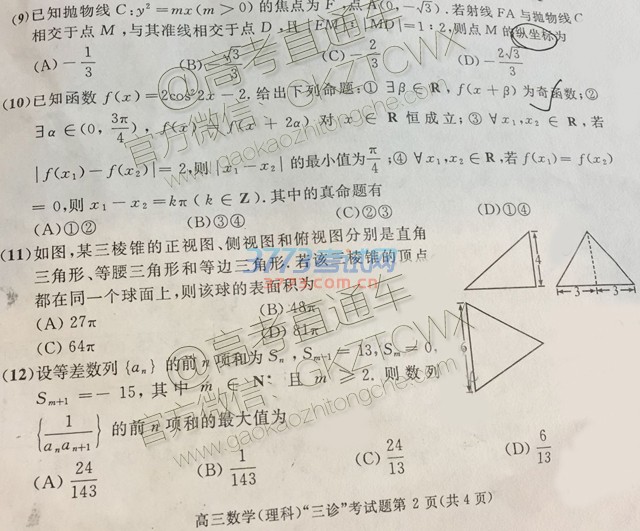 (9)已知抛物线 C:y²=mx(m>0)的焦点为 F,点A(0,-√3).若射线 FA 与抛物线 C
相交于点 M,与其准线相交于点 D,且|FM|:|MD|=1:2,则点 M 的纵坐标为
(A) -1/3 (B) -√3/3 (C) -2/3 (D) -2√3/3
(10)已知函数 f(x)=2cos²2x-2.给出下列命题:① ∃β∈R,f(x+β)为奇函数;②
∃α∈(0,3π/4),f(x)=f(x+2α)对 x∈R 恒成立;③ ∀x₁,x₂∈R,若
|f(x₁)-f(x₂)|=2,则|x₁-x₂|的最小值为π/4;④ ∀x₁,x₂∈R,若f(x₁)=f(x₂)
=0,则 x₁-x₂=kπ(k∈Z).其中的真命题有
(A)①② (B)③④ (C)②③ (D)①④
(11)如图,某三棱锥的正视图、侧视图和俯视图分别是直角
三角形、等腰三角形和等边三角形.若该三棱锥的顶点
都在同一个球面上,则该球的表面积为
(A) 27π (B) 48π
(C) 64π (D) 81π
4
3 3
6
(12)设等差数列{aₙ}的前 n 项和为 Sₙ,Sₘ₋₁=13,Sₘ=0,
Sₘ₊₁=-15,其中 m∈N* 且 m≥2.则数列
{1/(aₙaₙ₊₁)}的前 n 项和的最大值为
(A) 24/143 (B) 1/143 (C) 24/13 (D) 6/13
高三数学(理科)“三诊”考试题第 2 页(共 4 页)
@高考直通车
官方微信:GKZTCWX
www.gaokaozhitongche.com
3773考试网
3773.com.cn
@高考直通车
官方微信:GKZTCWX
www.gaokaozhitongche.com